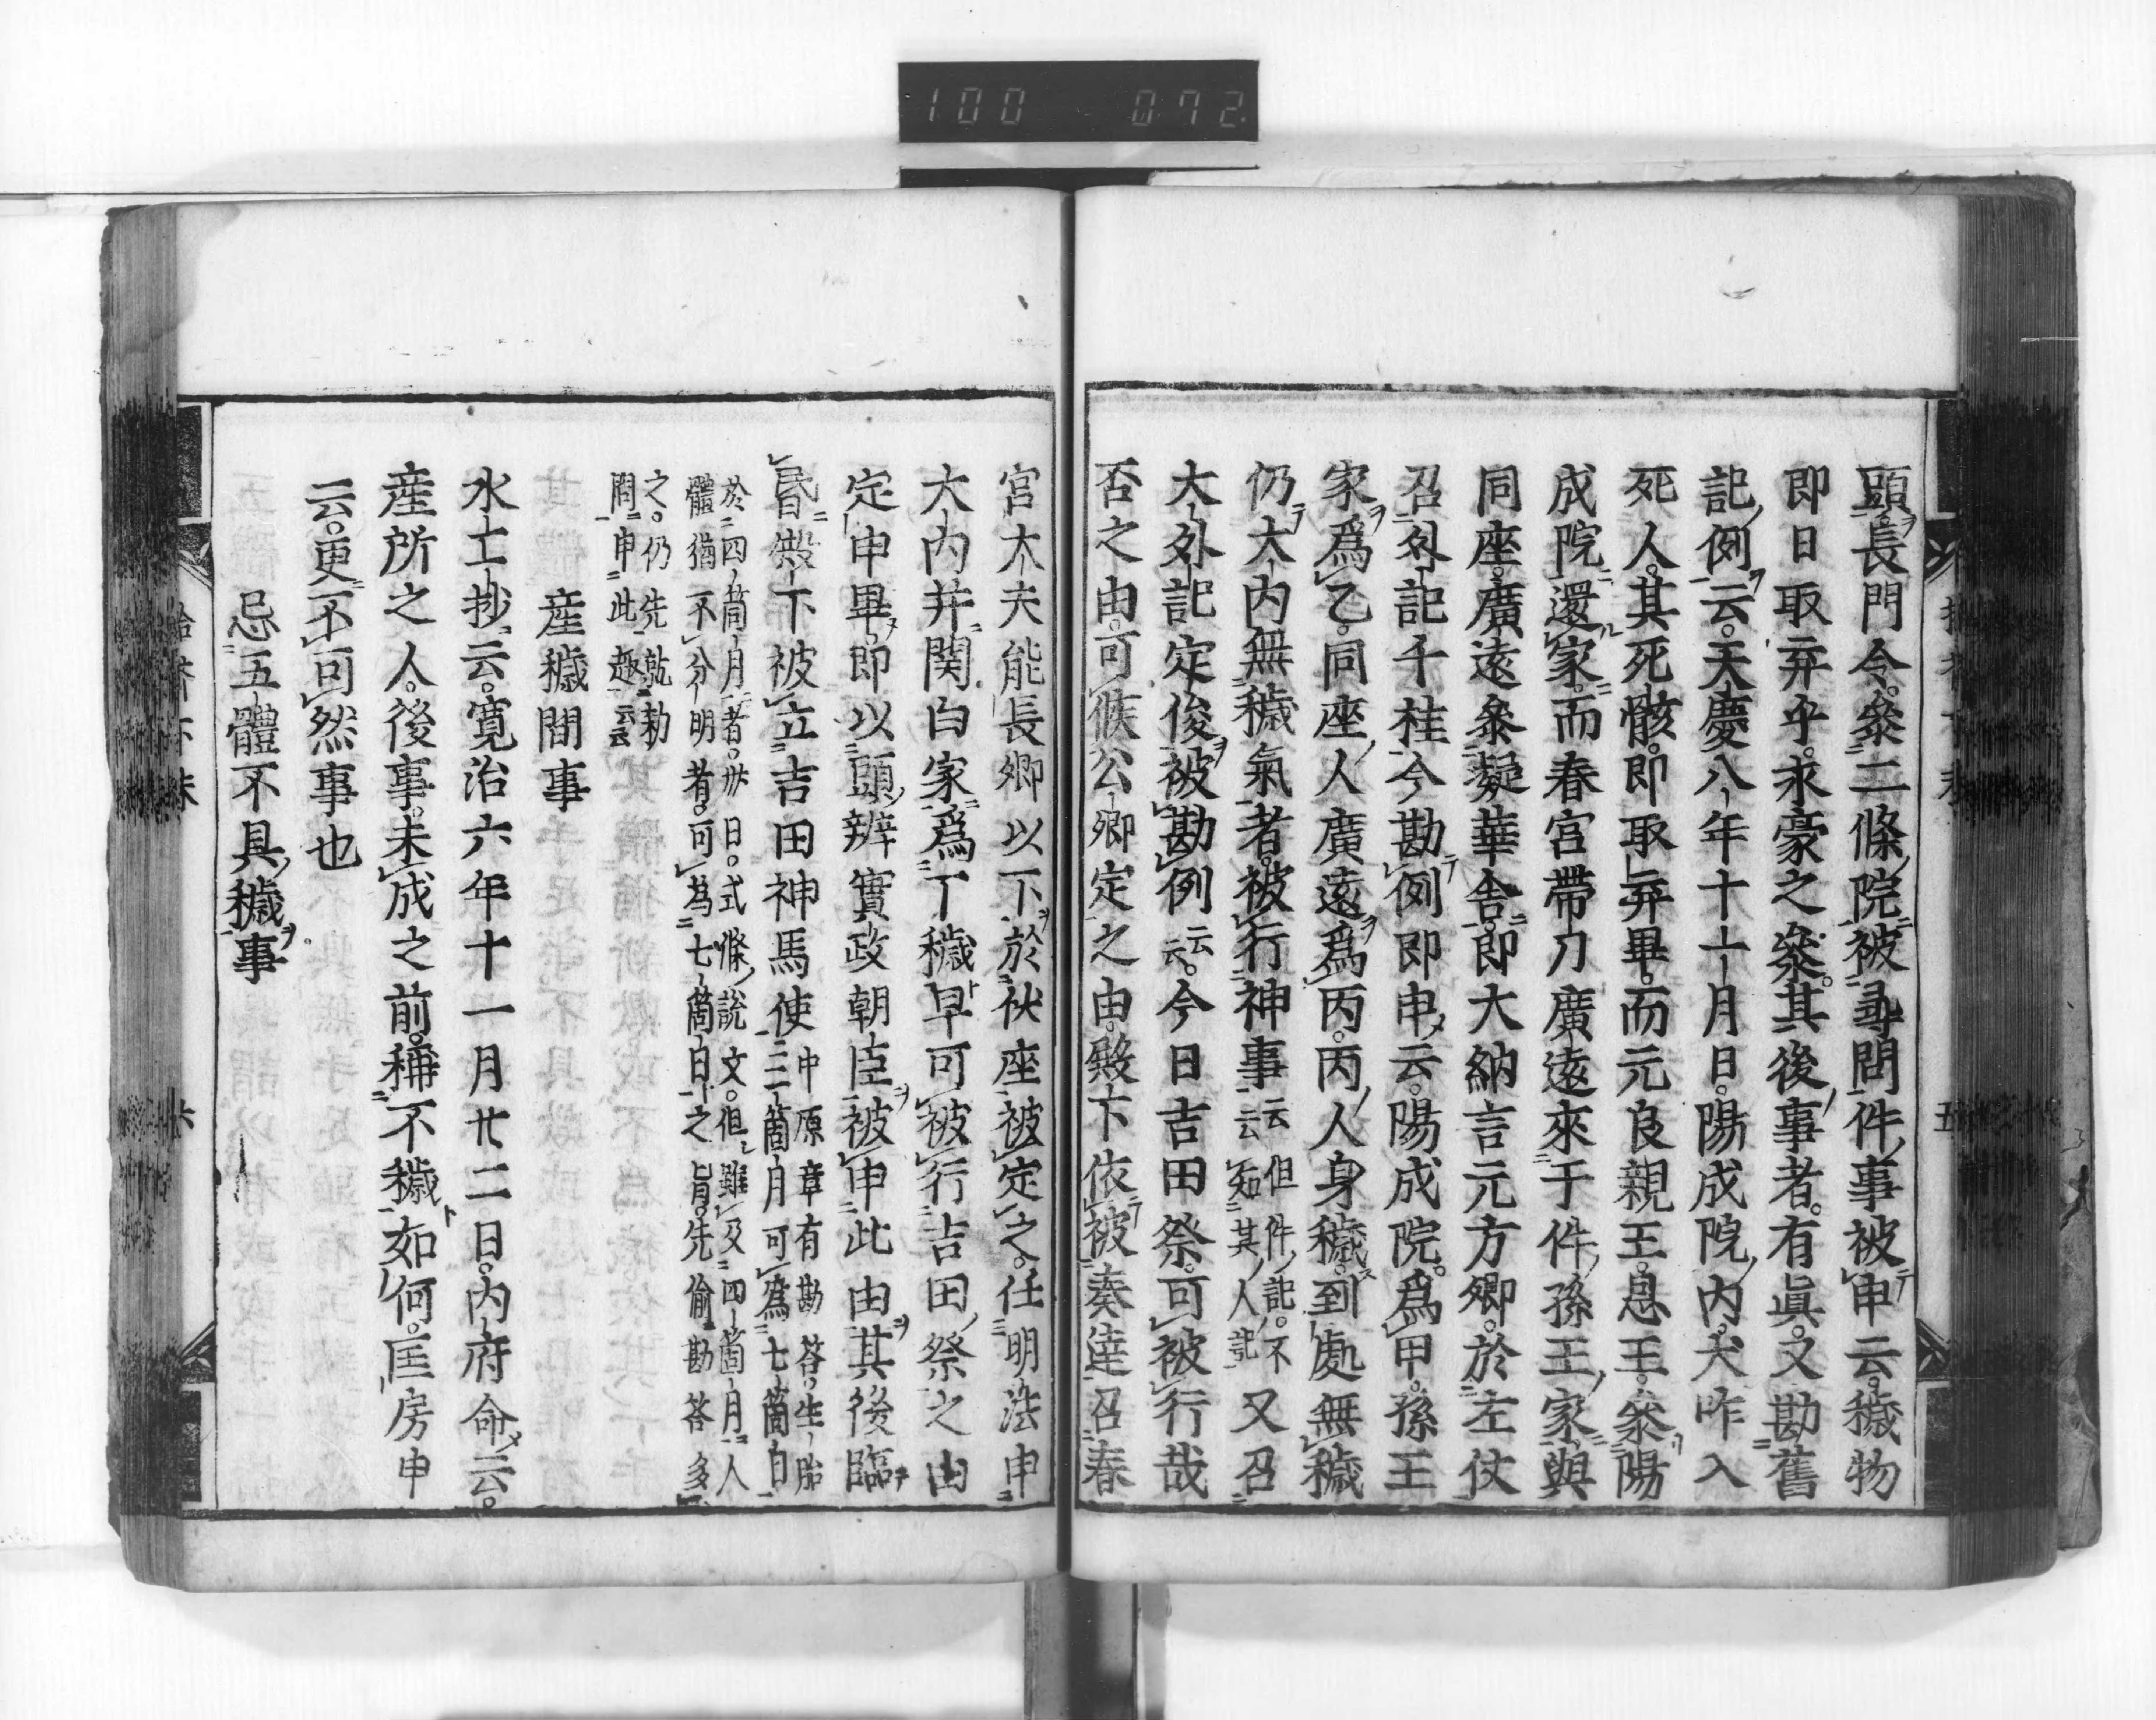 100 072
頭長門令參二條院被尋問件事被申云穢物
即日取弃乎求豪之參其後事者有眞又勘舊
記例云天慶八年十一月日陽成院內犬咋入
死人其死骸即取弃畢而元良親王息王參陽
成院還家而春宮帶刀廣遠來于件孫王家與
同座廣遠參凝華舍即大納言元方卿於左仗
召外記千桂今勘例即申云陽成院爲甲孫王
家爲乙同座人廣遠爲丙丙人身穢到處無穢
仍大內無穢氣者被行神事云云但件記不知其人記又召
大外記定俊被勘例云云今日吉田祭可被行哉
否之由可候公卿定之由殿下依被奏達召春
宮大夫能長卿以下於伏座被定之任明法申
大內并関白家爲丁穢早可被行吉田祭之由
定申畢即以頭辨實政朝臣被申此由其後臨
昏殿下被立吉田神馬使中原章有勘答生胎三箇月可爲七箇日
於四箇月者卅日式條說文但雖及四箇月人
體猶不分明者可為七箇日之旨先偷勘答多
之仍先就勅
問申此趣云云
産穢間事
水士抄云寛治六年十一月廿二日內府命云
産所之人後事未成之前稱不穢如何匡房申
云更不可然事也
忌五體不具穢事